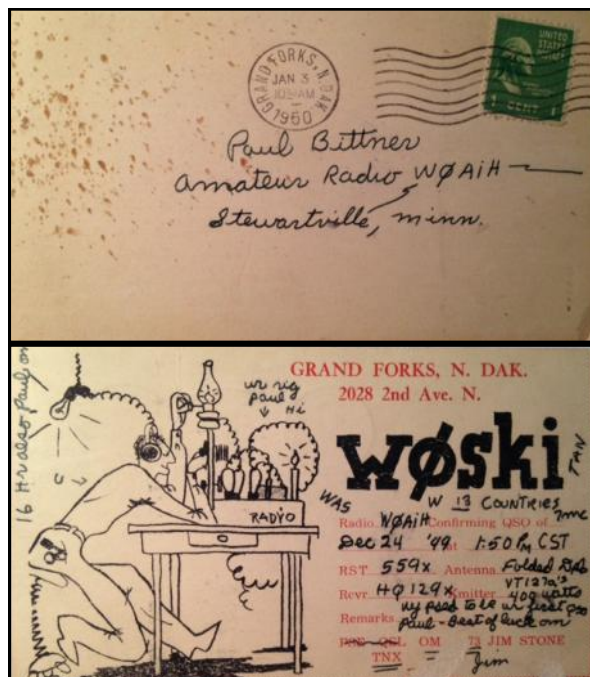 GRAND FORKS, N. DAK.
JAN 3
AM
1950
UNITED
STATES
1 CENT 1
Paul Bittner
Amateur Radio WØAiH
Stewartville, Minn.
16 Hr also Paul om
ur rig
Paul
Hi
RADIO
GRAND FORKS, N. DAK.
2028 2nd Ave. N.
wøski
WAS
W 13 COUNTRIES
Radio WØAiH Confirming QSO of
Dec 24 '49 at 1:50 PM CST
RST 559x Antenna Folded
Recvr HQ129x Xmitter 400 watts
VT127A's
Remarks ur first QSO
Paul - Best of luck om
PSE QSL OM 73 JIM STONE
TNX
Jim